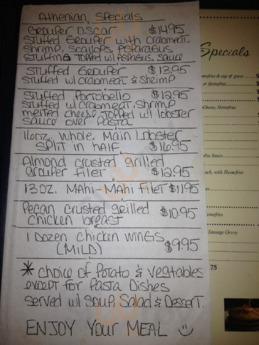 Athenian Specials
Grouper Oscar $14.95
Stuffed Grouper with crabmeat
shrimp, scallops & Asparagus
stuffing & Topped w/Asparagus Sauce
Stuffed Grouper $13.95
stuffed w/ crabmeat & Shrimp
Stuffed Portobello $13.95
stuffed w/ crabmeat, Shrimp
melted cheese Topped w/ lobster
sauce over Pasta
whole Main Lobster
SPLIT in half $16.95
Almond crusted grilled
Grouper Filet $12.95
13 oz. Mahi-Mahi Filet $11.95
Pecan Crusted Grilled
chicken breast $10.95
1 Dozen chicken wings
(MILD) $9.95
* choice of Potato & Vegetables
except for Pasta Dishes
served w/ Soup, Salad & Dessert
ENJOY YOUR MEAL
Specials